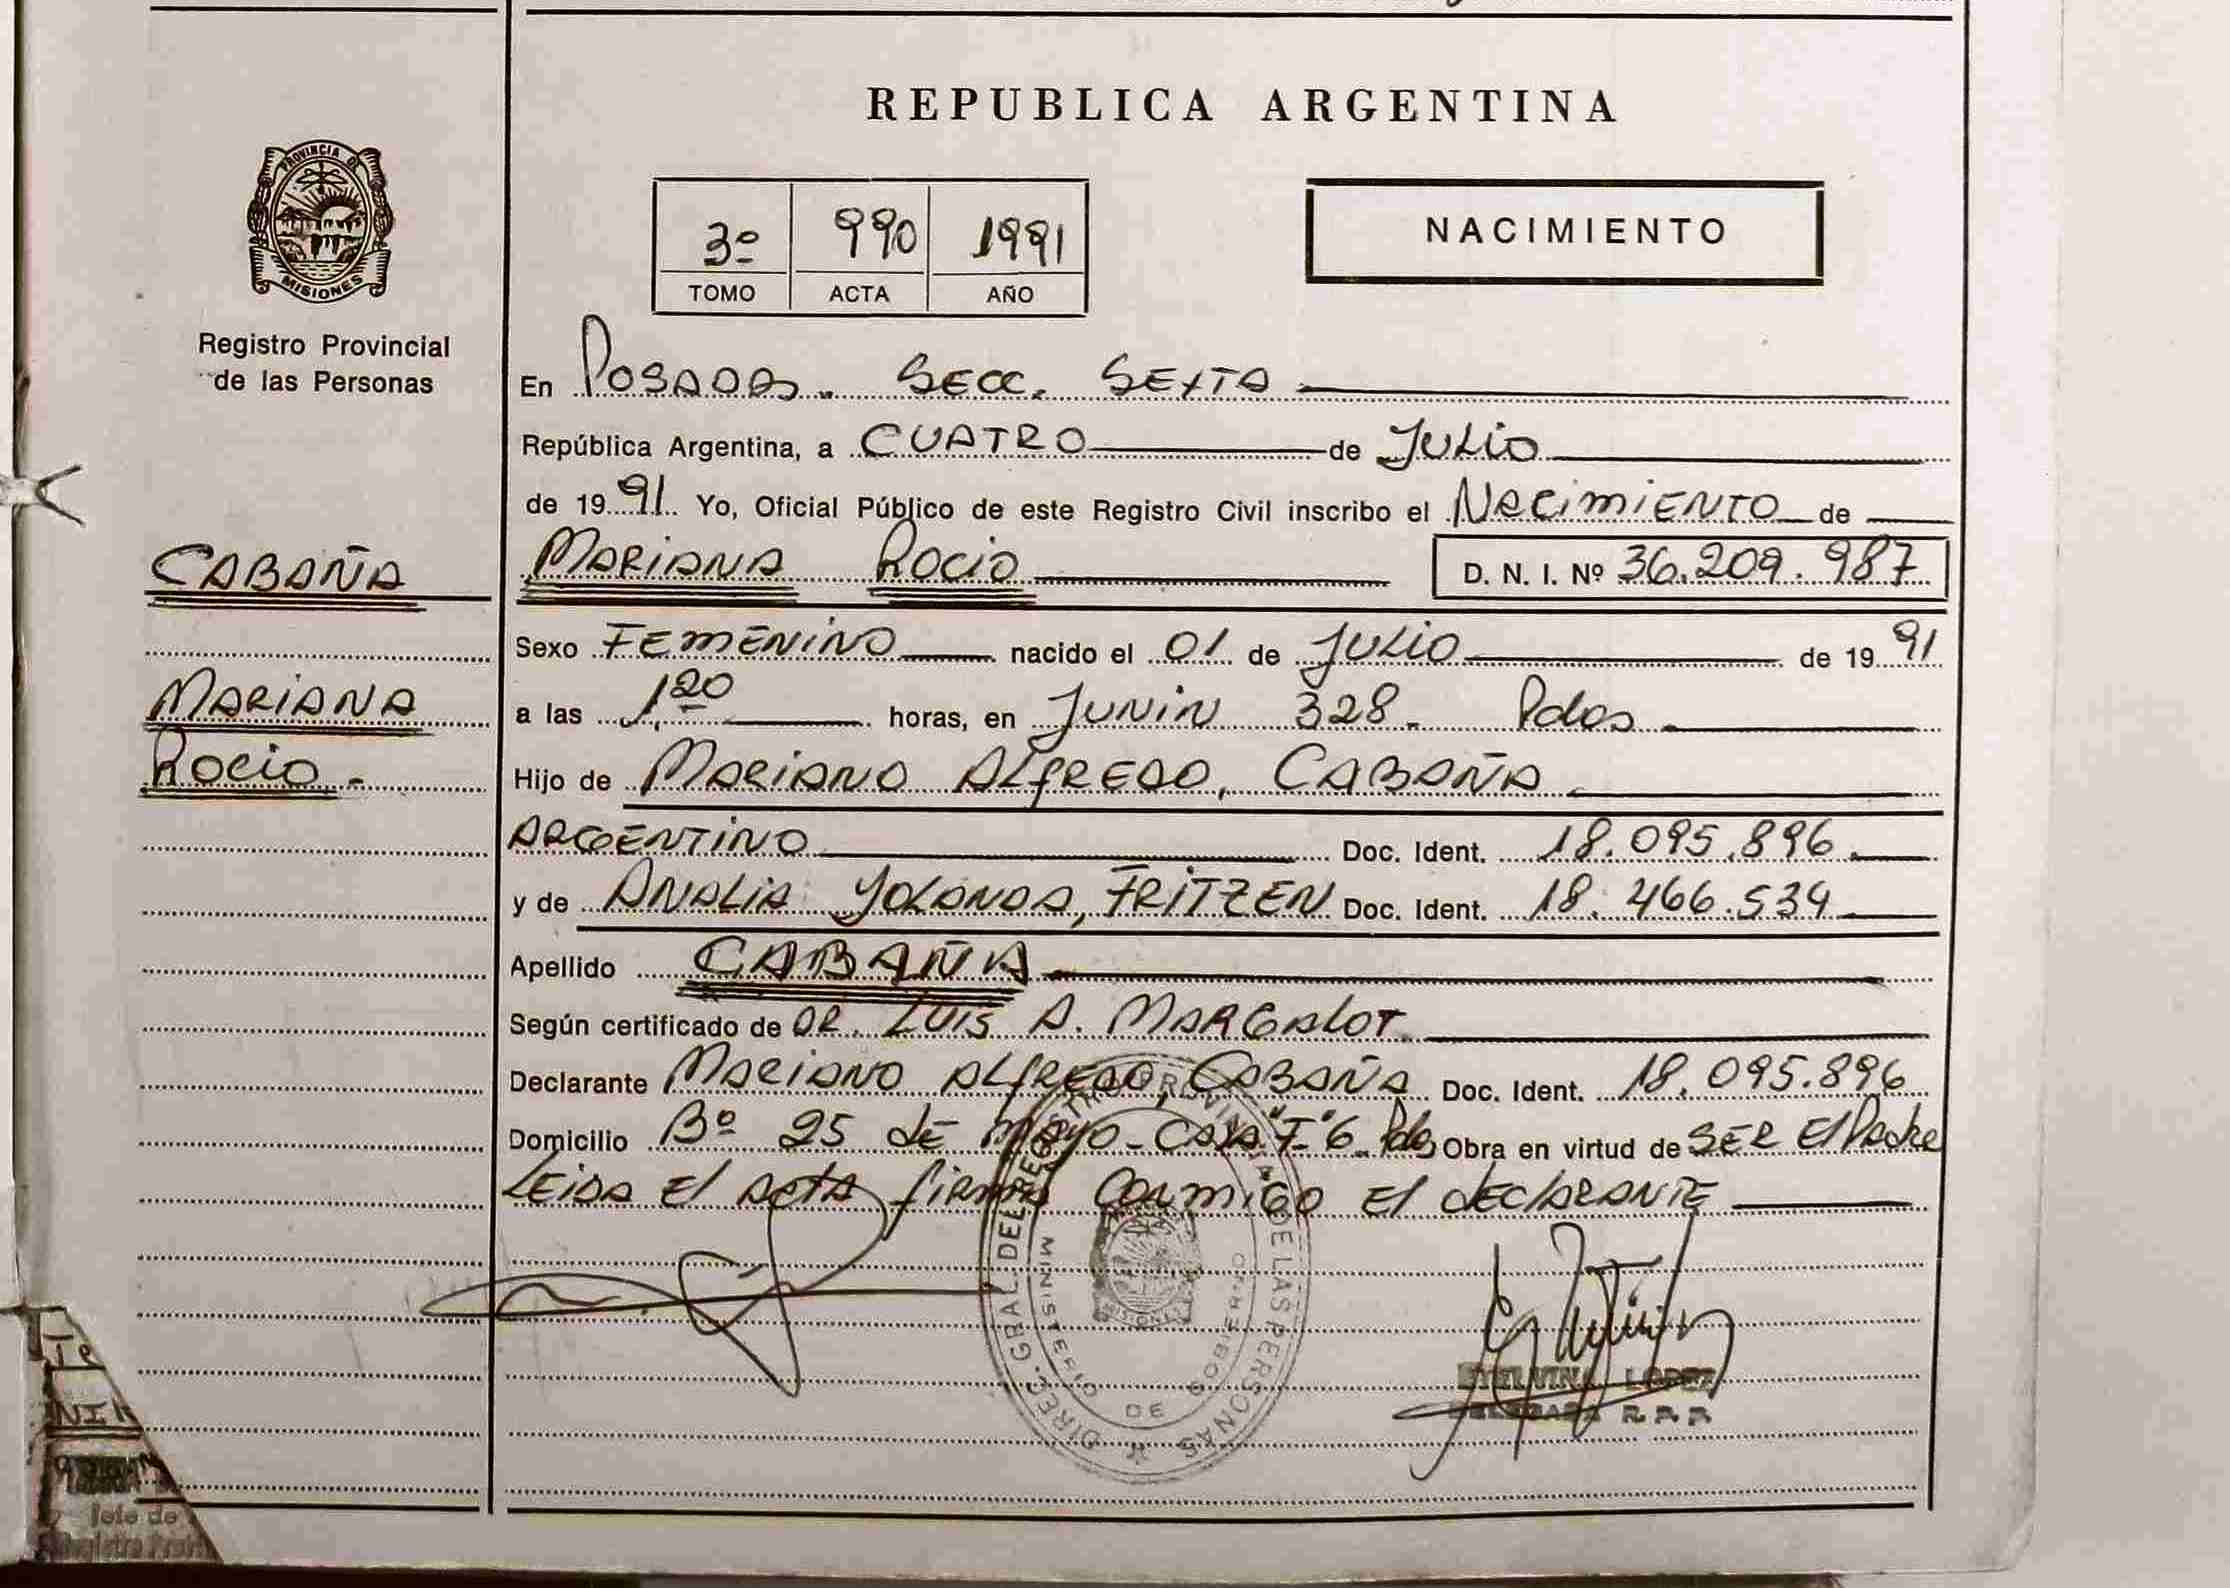 REPUBLICA ARGENTINA
PROVINCIA DE
MISIONES
3º 990 1991
TOMO ACTA AÑO
NACIMIENTO
Registro Provincial
de las Personas
En POSADAS. SECC. SEXTA
República Argentina, a CUATRO de JULIO
de 1991 Yo, Oficial Público de este Registro Civil inscribo el NACIMIENTO de
CABAÑA
MARIANA ROCIO D. N. I. Nº 36.209.987
Sexo FEMENINO nacido el 01 de JULIO de 1991
MARIANA
a las 1,20 horas, en JUNIN 328. Pdas
ROCIO.-
Hijo de MARIANO ALFREDO, CABAÑA
ARGENTINO Doc. Ident. 18.095.896
y de ANALIA YOLANDA, FRITZEN Doc. Ident. 18.466.534
Apellido CABAÑA
Según certificado de DR. LUIS A. MARGALOT
Declarante MARIANO ALFREDO, CABAÑA Doc. Ident. 18.095.896
Domicilio Bº 25 de Mayo - Casa "I" 6 Pdas Obra en virtud de SER El Padre
LEIDA El acta firma CONMIGO El dECLARANTE
DIREC. GRAL. DEL REGISTRO PROVINCIAL DE LAS PERSONAS
MINISTERIO DE GOBIERNO
ETELVINA LOPEZ
DELEGADA R.P.P.
Jefe de
Registro Prov